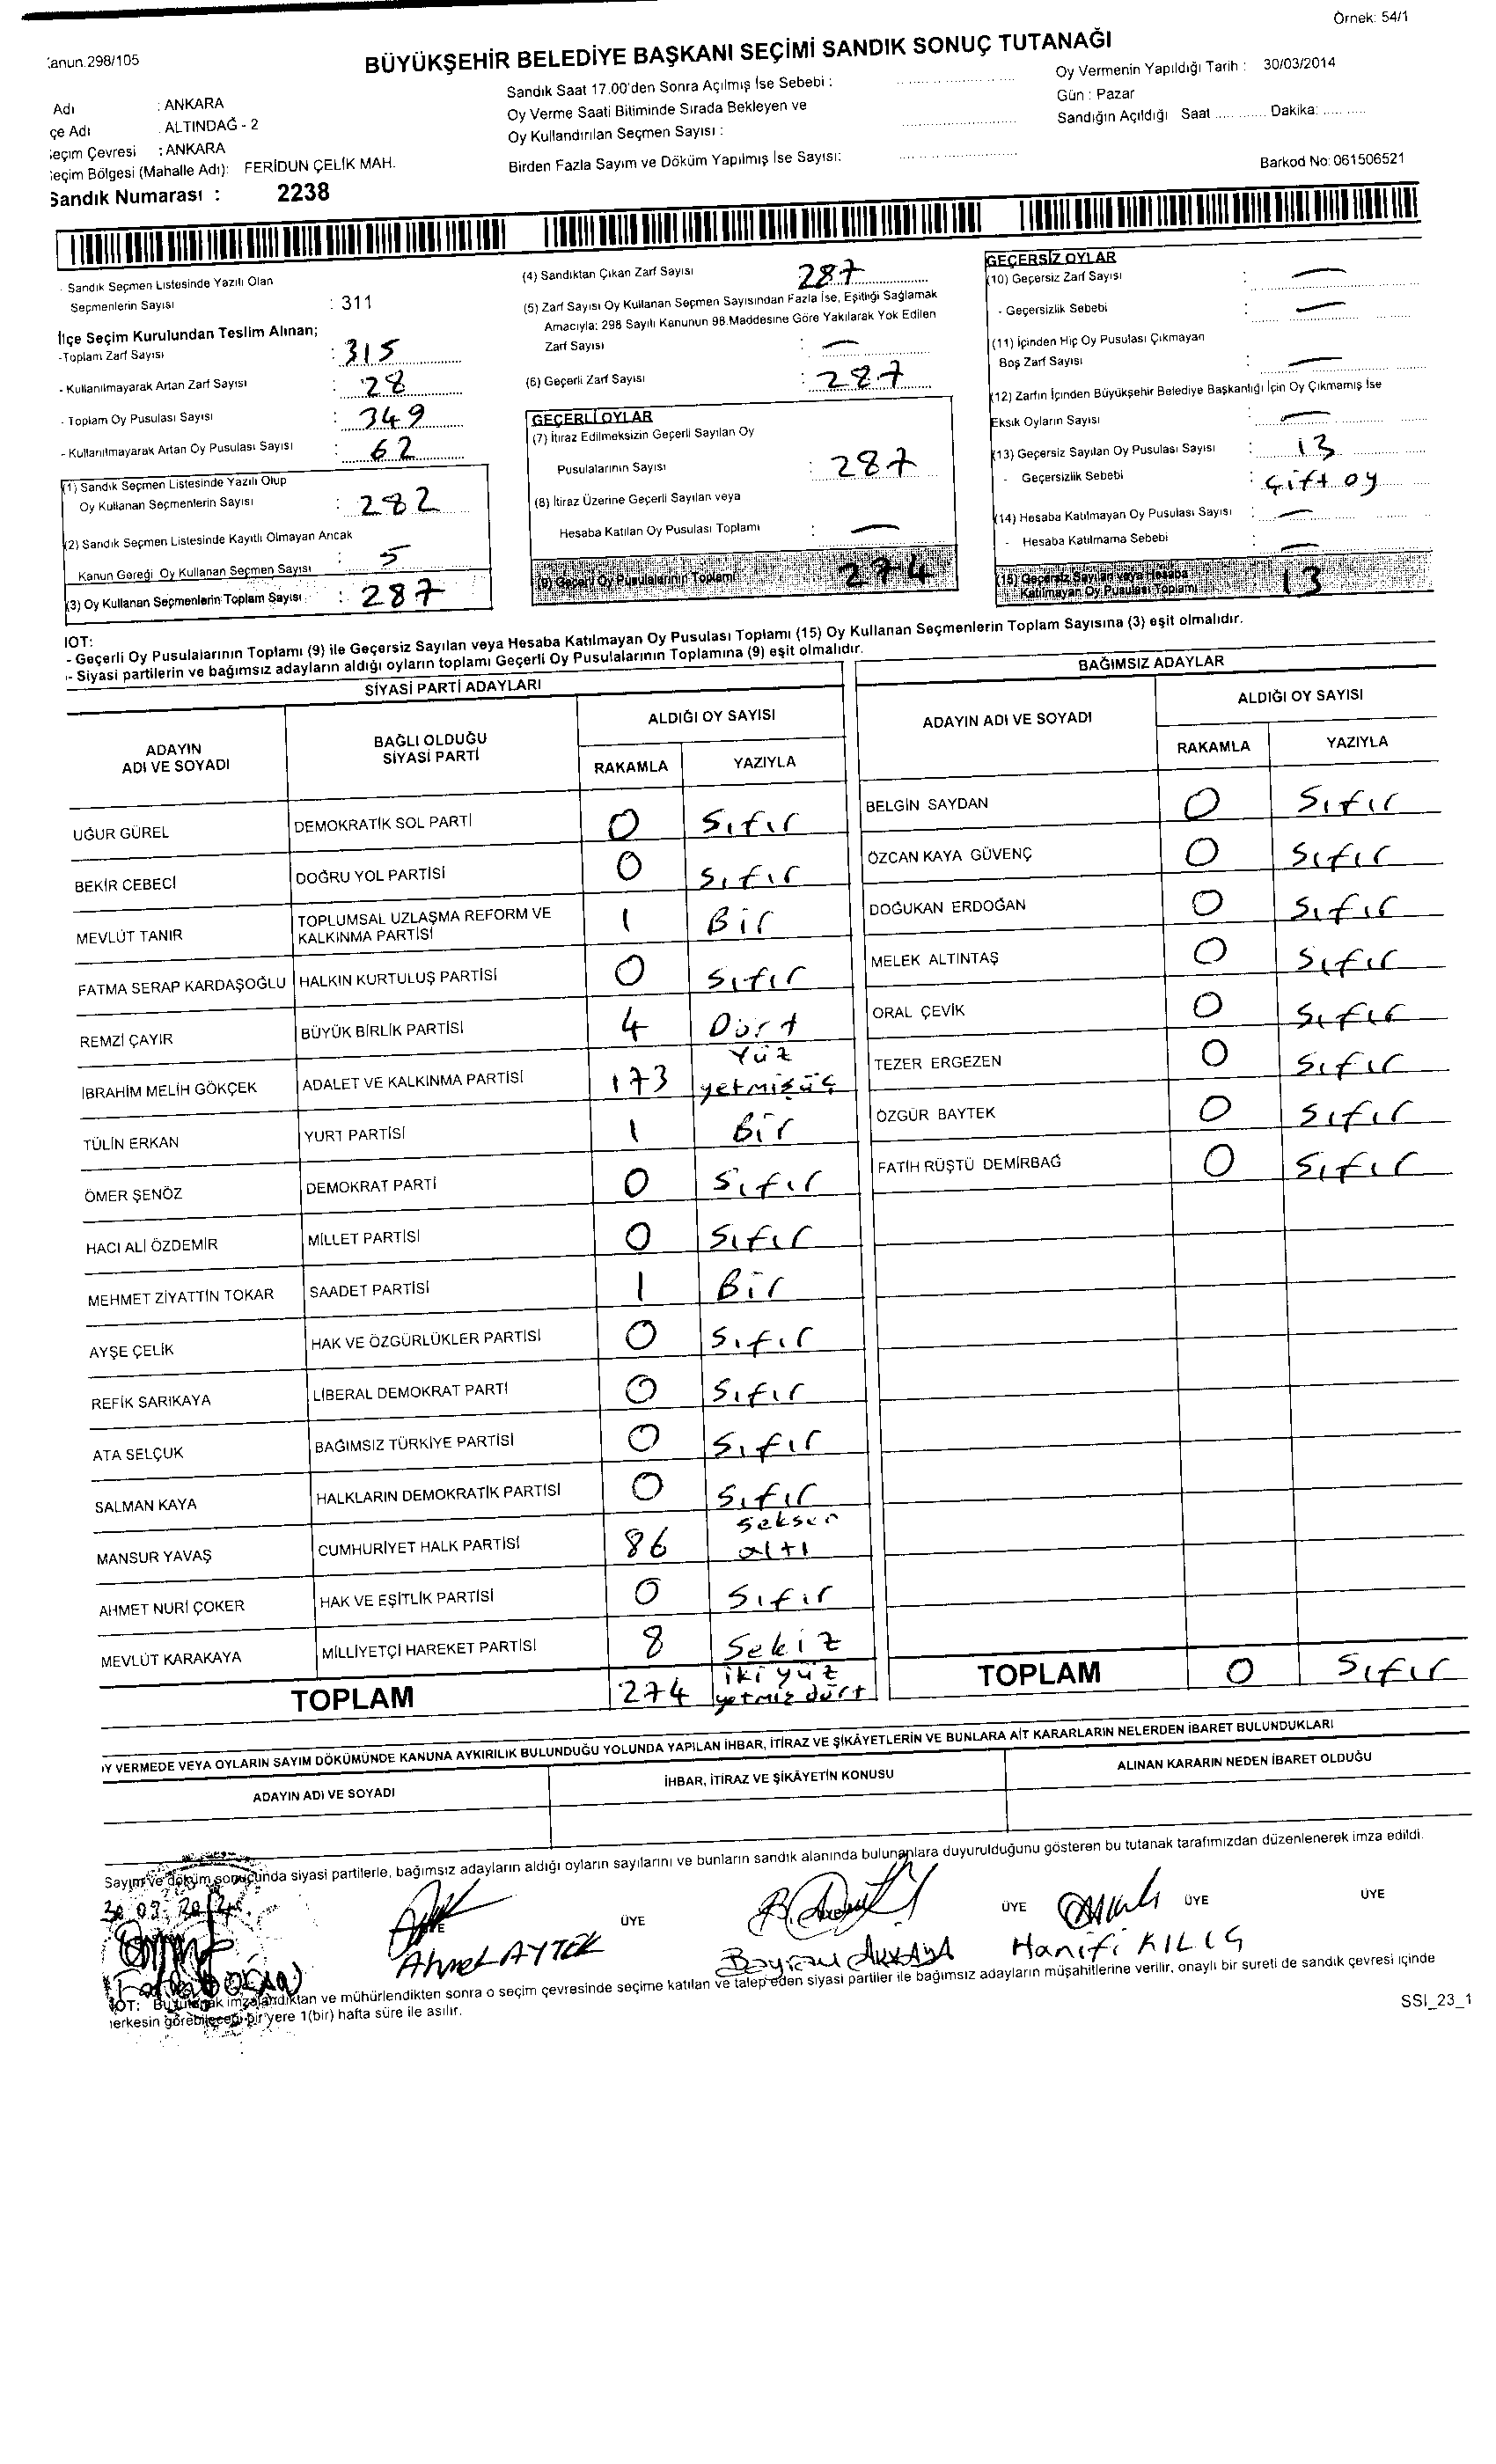 Örnek: 54/1
BÜYÜKŞEHİR BELEDİYE BAŞKANI SEÇİMİ SANDIK SONUÇ TUTANAĞI
anun.298/105
Adı : ANKARA
çe Adı : ALTINDAĞ - 2
eçim Çevresi : ANKARA
eçim Bölgesi (Mahalle Adı): FERİDUN ÇELİK MAH.
Sandık Numarası : 2238
Sandık Saat 17.00'den Sonra Açılmış İse Sebebi :
Oy Verme Saati Bitiminde Sırada Bekleyen ve
Oy Kullandırılan Seçmen Sayısı :
Birden Fazla Sayım ve Döküm Yapılmış İse Sayısı:
Oy Vermenin Yapıldığı Tarih : 30/03/2014
Gün : Pazar
Sandığın Açıldığı Saat ............ Dakika: ............
Barkod No: 061506521
- Sandık Seçmen Listesinde Yazılı Olan
Seçmenlerin Sayısı : 311
İlçe Seçim Kurulundan Teslim Alınan;
-Toplam Zarf Sayısı : 315
- Kullanılmayarak Artan Zarf Sayısı : 28
- Toplam Oy Pusulası Sayısı : 349
- Kullanılmayarak Artan Oy Pusulası Sayısı : 62
(1) Sandık Seçmen Listesinde Yazılı Olup
Oy Kullanan Seçmenlerin Sayısı : 282
(2) Sandık Seçmen Listesinde Kayıtlı Olmayan Ancak
Kanun Gereği Oy Kullanan Seçmen Sayısı : 5
(3) Oy Kullanan Seçmenlerin Toplam Sayısı : 287
(4) Sandıktan Çıkan Zarf Sayısı 287
(5) Zarf Sayısı Oy Kullanan Seçmen Sayısından Fazla İse, Eşitliği Sağlamak
Amacıyla: 298 Sayılı Kanunun 98.Maddesine Göre Yakılarak Yok Edilen
Zarf Sayısı : —
(6) Geçerli Zarf Sayısı : 287
GEÇERLİ OYLAR
(7) İtiraz Edilmeksizin Geçerli Sayılan Oy
Pusulalarının Sayısı : 287
(8) İtiraz Üzerine Geçerli Sayılan veya
Hesaba Katılan Oy Pusulası Toplamı : —
(9) Geçerli Oy Pusulalarının Toplamı 274
GEÇERSİZ OYLAR
(10) Geçersiz Zarf Sayısı : —
- Geçersizlik Sebebi : —
(11) İçinden Hiç Oy Pusulası Çıkmayan
Boş Zarf Sayısı : —
(12) Zarfın İçinden Büyükşehir Belediye Başkanlığı İçin Oy Çıkmamış İse
Eksik Oyların Sayısı : —
(13) Geçersiz Sayılan Oy Pusulası Sayısı : 13
- Geçersizlik Sebebi : Çift oy
(14) Hesaba Katılmayan Oy Pusulası Sayısı : —
- Hesaba Katılmama Sebebi : —
(15) Geçersiz Sayılan veya Hesaba
Katılmayan Oy Pusulası Toplamı 13
NOT:
- Geçerli Oy Pusulalarının Toplamı (9) ile Geçersiz Sayılan veya Hesaba Katılmayan Oy Pusulası Toplamı (15) Oy Kullanan Seçmenlerin Toplam Sayısına (3) eşit olmalıdır.
- Siyasi partilerin ve bağımsız adayların aldığı oyların toplamı Geçerli Oy Pusulalarının Toplamına (9) eşit olmalıdır.
SİYASİ PARTİ ADAYLARI
ADAYIN ADI VE SOYADI BAĞLI OLDUĞU SİYASİ PARTİ ALDIĞI OY SAYISI
RAKAMLA YAZIYLA
UĞUR GÜREL DEMOKRATİK SOL PARTİ 0 Sıfır
BEKİR CEBECİ DOĞRU YOL PARTİSİ 0 Sıfır
MEVLÜT TANIR TOPLUMSAL UZLAŞMA REFORM VE KALKINMA PARTİSİ 1 Bir
FATMA SERAP KARDAŞOĞLU HALKIN KURTULUŞ PARTİSİ 0 Sıfır
REMZİ ÇAYIR BÜYÜK BİRLİK PARTİSİ 4 Dört
İBRAHİM MELİH GÖKÇEK ADALET VE KALKINMA PARTİSİ 173 Yüz yetmişüç
TÜLİN ERKAN YURT PARTİSİ 1 Bir
ÖMER ŞENÖZ DEMOKRAT PARTİ 0 Sıfır
HACI ALİ ÖZDEMİR MİLLET PARTİSİ 0 Sıfır
MEHMET ZİYATTİN TOKAR SAADET PARTİSİ 1 Bir
AYŞE ÇELİK HAK VE ÖZGÜRLÜKLER PARTİSİ 0 Sıfır
REFİK SARIKAYA LİBERAL DEMOKRAT PARTİ 0 Sıfır
ATA SELÇUK BAĞIMSIZ TÜRKİYE PARTİSİ 0 Sıfır
SALMAN KAYA HALKLARIN DEMOKRATİK PARTİSİ 0 Sıfır
MANSUR YAVAŞ CUMHURİYET HALK PARTİSİ 86 Seksen altı
AHMET NURİ ÇOKER HAK VE EŞİTLİK PARTİSİ 0 Sıfır
MEVLÜT KARAKAYA MİLLİYETÇİ HAREKET PARTİSİ 8 Sekiz
TOPLAM 274 iki yüz yetmiz dört
BAĞIMSIZ ADAYLAR
ADAYIN ADI VE SOYADI ALDIĞI OY SAYISI
RAKAMLA YAZIYLA
BELGİN SAYDAN 0 Sıfır
ÖZCAN KAYA GÜVENÇ 0 Sıfır
DOĞUKAN ERDOĞAN 0 Sıfır
MELEK ALTINTAŞ 0 Sıfır
ORAL ÇEVİK 0 Sıfır
TEZER ERGEZEN 0 Sıfır
ÖZGÜR BAYTEK 0 Sıfır
FATİH RÜŞTÜ DEMİRBAĞ 0 Sıfır
TOPLAM 0 Sıfır
Y VERMEDE VEYA OYLARIN SAYIM DÖKÜMÜNDE KANUNA AYKIRILIK BULUNDUĞU YOLUNDA YAPILAN İHBAR, İTİRAZ VE ŞİKÂYETLERİN VE BUNLARA AİT KARARLARIN NELERDEN İBARET BULUNDUKLARI
ADAYIN ADI VE SOYADI İHBAR, İTİRAZ VE ŞİKÂYETİN KONUSU ALINAN KARARIN NEDEN İBARET OLDUĞU
Sayım ve döküm sonucunda siyasi partilerle, bağımsız adayların aldığı oyların sayılarını ve bunların sandık alanında bulunanlara duyurulduğunu gösteren bu tutanak tarafımızdan düzenlenerek imza edildi.
30.03.2014
ÜYE ÜYE ÜYE ÜYE
Ahmet AYTEK Bayram AKKAYA Hanifi KILIÇ
NOT: Bu tutanak imzalandıktan ve mühürlendikten sonra o seçim çevresinde seçime katılan ve talep eden siyasi partiler ile bağımsız adayların müşahitlerine verilir, onaylı bir sureti de sandık çevresi içinde
herkesin görebileceği bir yere 1(bir) hafta süre ile asılır.
SSI_23_1